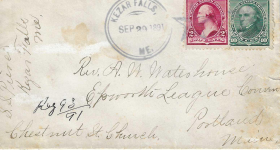 KEZAR FALLS,
SEP 29 1891
ME.
Kezar Falls
Me
Rev. A. W. Waterhouse
Epworth League
Reg 93
91
Chestnut St. Church.
Portland
Maine